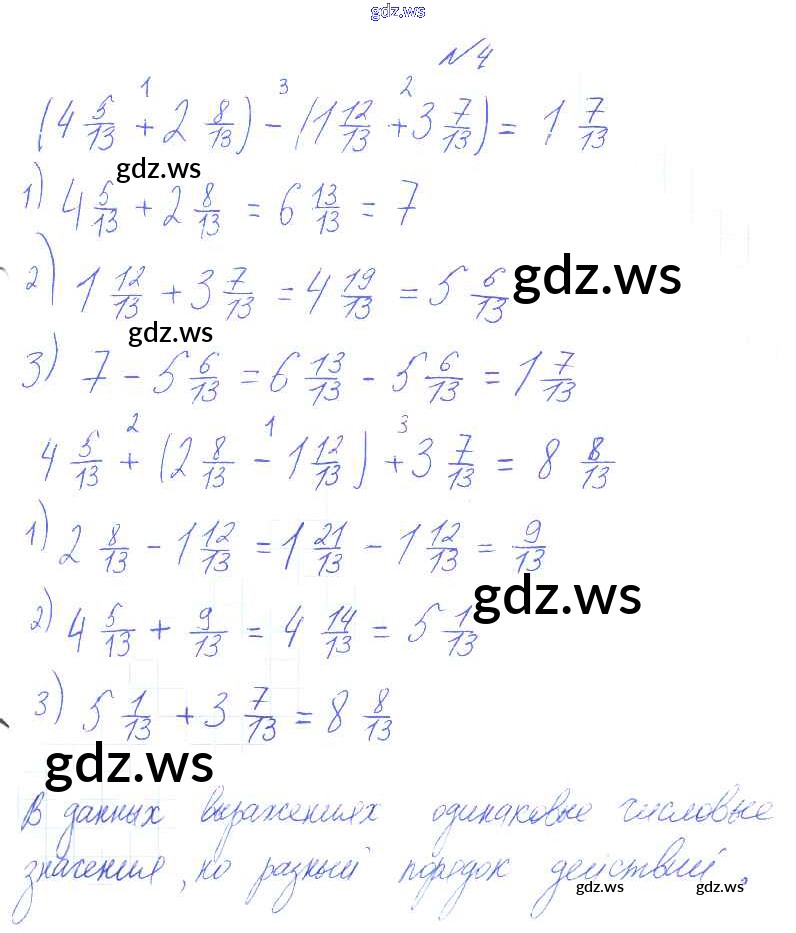 gdz.ws
№4
1 3 2
(4 5/13 + 2 8/13) - (1 12/13 + 3 7/13) = 1 7/13
gdz.ws
1) 4 5/13 + 2 8/13 = 6 13/13 = 7
2) 1 12/13 + 3 7/13 = 4 19/13 = 5 6/13
gdz.ws
gdz.ws
3) 7 - 5 6/13 = 6 13/13 - 5 6/13 = 1 7/13
2 1 3
4 5/13 + (2 8/13 - 1 12/13) + 3 7/13 = 8 8/13
1) 2 8/13 - 1 12/13 = 1 21/13 - 1 12/13 = 9/13
gdz.ws
2) 4 5/13 + 9/13 = 4 14/13 = 5 1/13
3) 5 1/13 + 3 7/13 = 8 8/13
gdz.ws
В данных выражениях одинаковые числовые
значения, но разный порядок действий.
gdz.ws gdz.ws